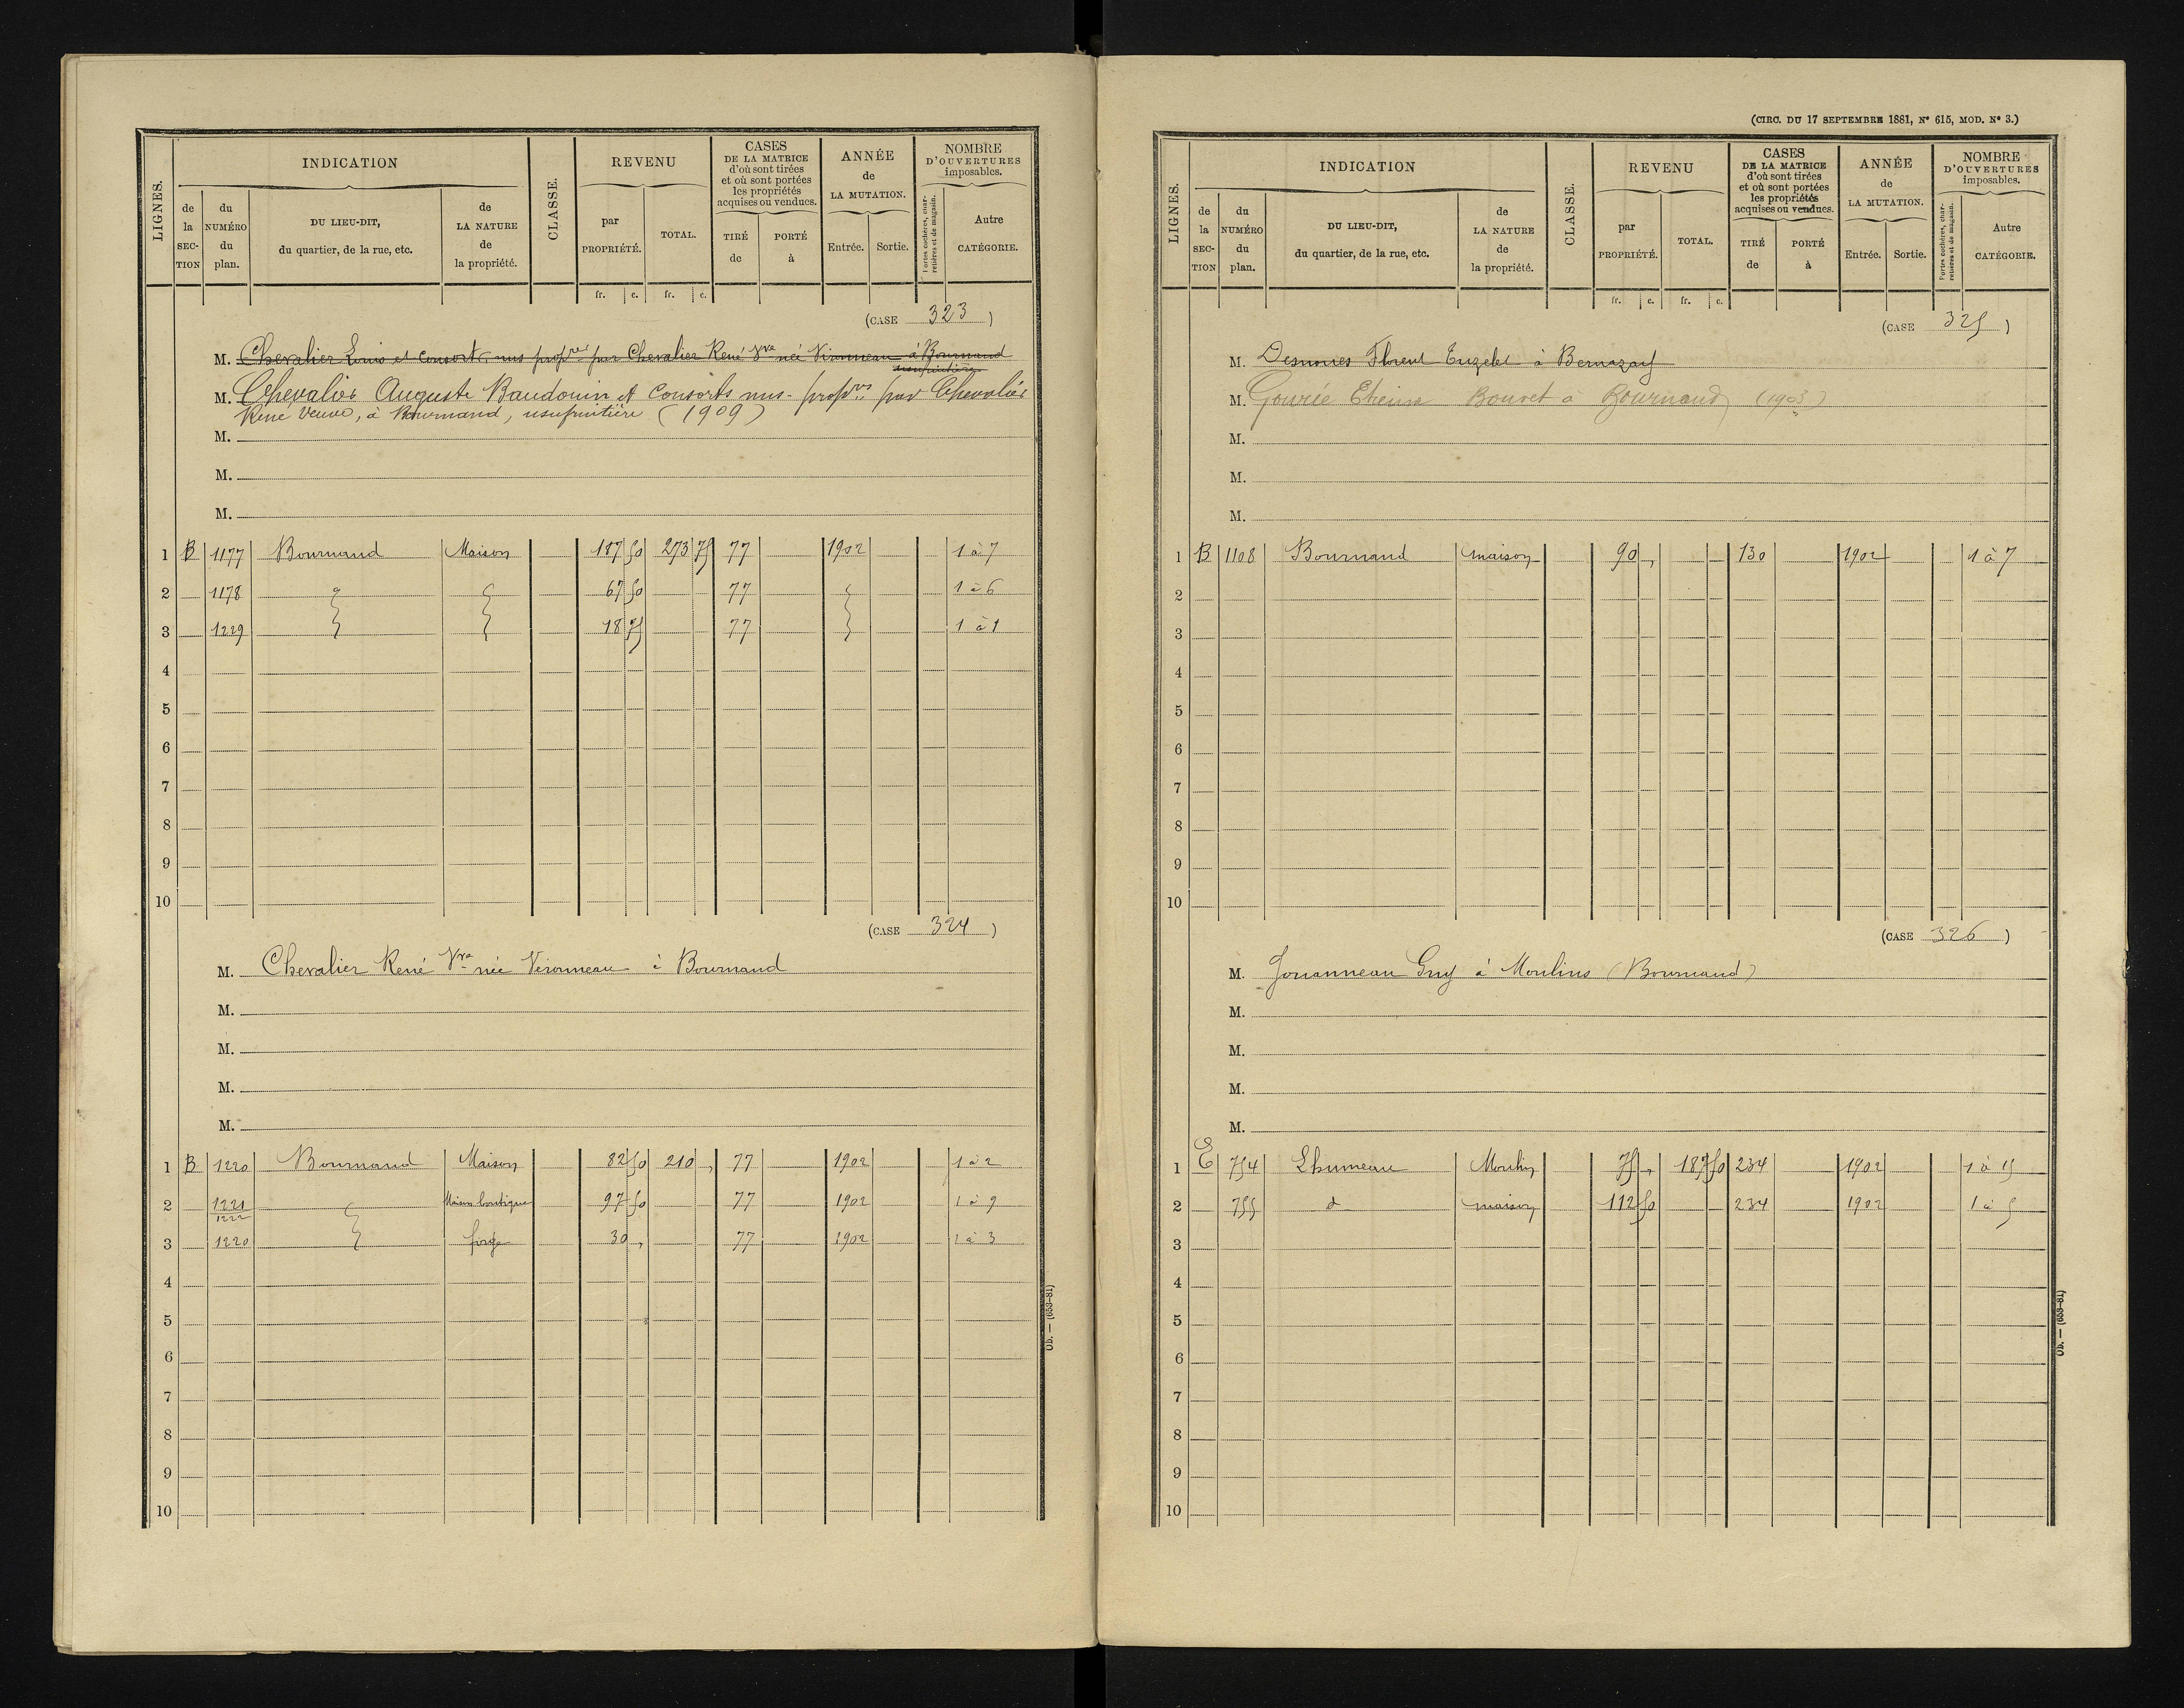 INDICATION
REVENU
CASES
DE LA MATRICE
d'où sont tirées
et où sont portées
les propriétés
acquises ou vendues.
ANNÉE
de
LA MUTATION.
NOMBRE
D'OUVERTURES
imposables.
LIGNES.
de la SEC-TION
du NUMÉRO du plan.
DU LIEU-DIT,
du quartier, de la rue, etc.
de LA NATURE de la propriété.
CLASSE.
par PROPRIÉTÉ.
TOTAL.
TIRÉ de
PORTÉ à
Entrée.
Sortie.
Portes cochères, charretières et de magasin.
Autre CATÉGORIE.
fr. c. fr. c.
(CASE 323)
M. Chevalier Louis et consorts nus propres par Chevalier René Vve née Vironneau à Bournand
usufruitière
M. Chevalier Auguste Baudouin et Consorts nus-proprs par Chevalier
René Veuve, à Bournand, usufruitière (1909)
M.
M.
M.
1 B 1177 Bournand Maison 187 50 273 75 77 1902 1 à 7
2 1178 67 50 77 1 à 6
3 1229 18 75 77 1 à 1
4
5
6
7
8
9
10
(CASE 324)
M. Chevalier René Vve née Vironneau à Bournand
M.
M.
M.
M.
1 B 1220 Bournand Maison 82 50 210 , 77 1902 1 à 2
2 1221 1222 Maison boutique 97 50 77 1902 1 à 9
3 1220 forge 30 , 77 1902 1 à 3
4
5
6
7
8
9
10
Ob. — (653-81)
(CIRC. DU 17 SEPTEMBRE 1881, N° 615, MOD. N° 3.)
INDICATION
REVENU
CASES
DE LA MATRICE
d'où sont tirées
et où sont portées
les propriétés
acquises ou vendues.
ANNÉE
de
LA MUTATION.
NOMBRE
D'OUVERTURES
imposables.
LIGNES.
de la SEC-TION
du NUMÉRO du plan.
DU LIEU-DIT,
du quartier, de la rue, etc.
de LA NATURE de la propriété.
CLASSE.
par PROPRIÉTÉ.
TOTAL.
TIRÉ de
PORTÉ à
Entrée.
Sortie.
Portes cochères, charretières et de magasin.
Autre CATÉGORIE.
fr. c. fr. c.
(CASE 325)
M. Florent à Bernazay
M. Gourié Etienne Bouret a Bournand (1903)
M.
M.
M.
1 B 1108 Bournand maison 90 , 130 1902 1 à 7
2
3
4
5
6
7
8
9
10
(CASE 326)
M. Jouanneau Guy à Moulins (Bournand)
M.
M.
M.
M.
1 E 754 Lhumeau Moulin 75 , 187 50 234 1902 1 à 15
2 755 d maison 112 50 234 1902 1 à 5
3
4
5
6
7
8
9
10
Ob. — (653-81)